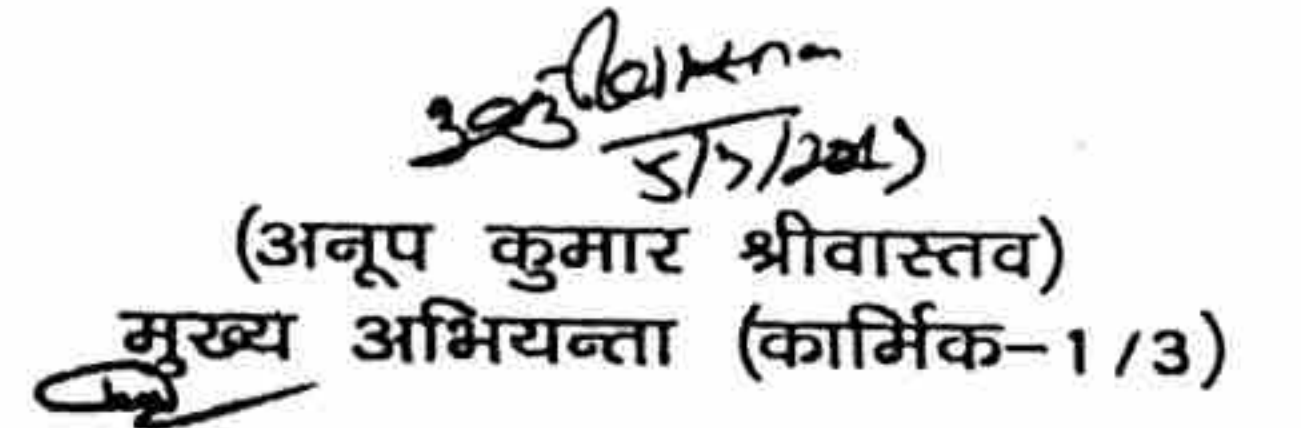 5/7/2017
(अनूप कुमार श्रीवास्तव)
मुख्य अभियन्ता (कार्मिक-1/3)